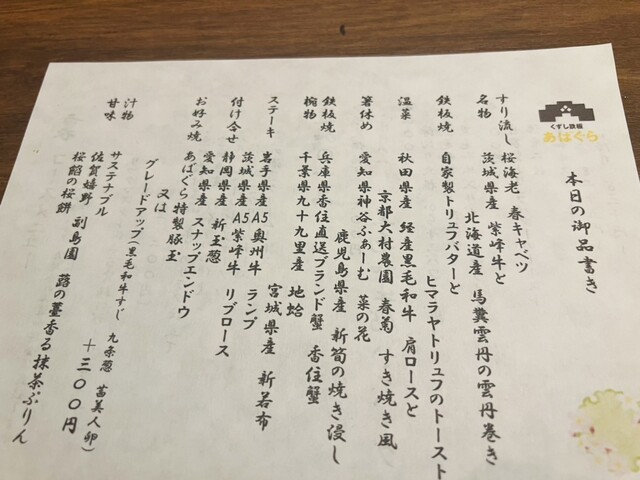 くずし鉄板
あばぐら
本日の御品書き
すり流し 桜海老 春キャベツ
名物 茨城県産 紫峰牛と
北海道産 馬糞雲丹の雲丹巻き
鉄板焼 自家製トリュフバターと
ヒマラヤトリュフのトースト
温菜 秋田県産 経産黒毛和牛 肩ロースと
京都大村農園 春菊 すき焼き風
箸休め 愛知県神谷ふぁーむ 菜の花
鹿児島県産 新筍の焼き浸し
鉄板焼 兵庫県香住直送ブランド蟹 香住蟹
椀物 千葉県九十九里産 地蛤
宮城県産 新若布
ステーキ 岩手県産A5奥州牛 ランプ
茨城県産A5紫峰牛 リブロース
付け合せ 静岡県産 新玉葱
愛知県産 スナップエンドウ
お好み焼 あばぐら特製豚玉
又は
グレードアップ(黒毛和牛すじ 九条葱 茜美人卵)
+300円
汁物 サステナブル
甘味 佐賀嬉野 副島園 蕗の薹香る抹茶ぷりん
桜餡の桜餅